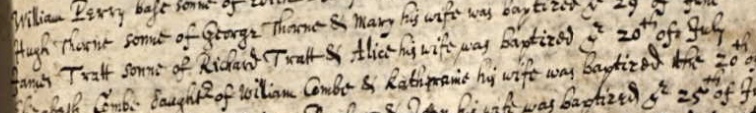 William Perry base sonne of was baptized ye 29 of June
Hugh Thorne sonne of George Thorne & Mary his wife was baptized ye 20th of July
James Tratt sonne of Richard Tratt & Alice his wife was baptized the 20th of
Combe daughtr of William Combe & Katherine his wife was baptized ye 25th of
his wife was baptized